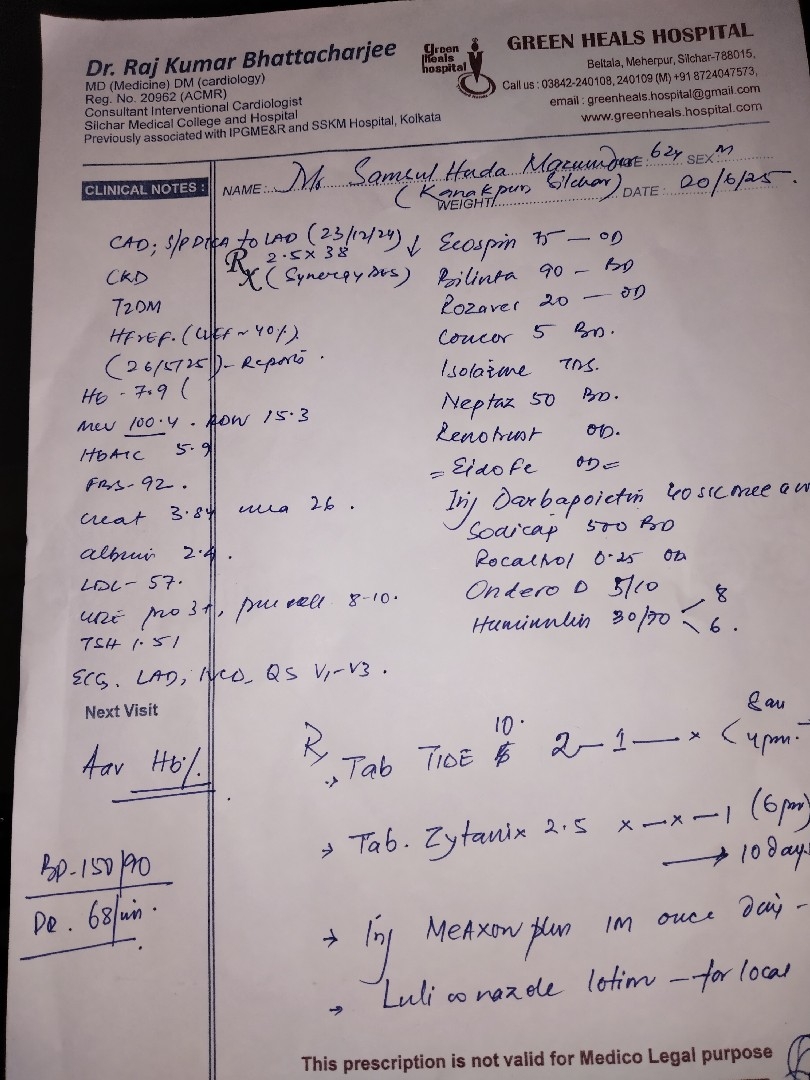 Dr. Raj Kumar Bhattacharjee
MD (Medicine) DM (cardiology)
Reg. No. 20962 (ACMR)
Consultant Interventional Cardiologist
Silchar Medical College and Hospital
Previously associated with IPGME&R and SSKM Hospital, Kolkata
Green Heals hospital
GREEN HEALS HOSPITAL
Beltala, Meherpur, Silchar-788015,
Call us : 03842-240108, 240109 (M) +91 8724047573,
email : greenheals.hospital@gmail.com
www.greenheals.hospital.com
CLINICAL NOTES :
NAME: Mr Samsul Huda AGE: 62y SEX M
(Kanakpur Silchar)
WEIGHT DATE : 20/6/25.
CAD; S/P to LAD (23/12/24) ↓
Rx 2.5x38
(Synergy DES)
CKD
T2DM
HFrEF. (LVEF ~ 40%)
(26/5/25) - Reports.
Hb - 7.9 (
MCV 100.4. RDW 15.3
HbA1C 5.9
FBS-92.
Creat 3.84 26.
albumin 2.4.
LDL- 57.
URE pro 3+, pus cell 8-10.
TSH 1.51
ECG. LAD, IVCD, QS V1-V3.
Ecospin 75 — OD
Bilinta 90 - BD
Rozavel 20 — OD
Concor 5 BD.
Isolazine TDS.
Neptaz 50 BD.
Renotrust OD.
= OD=
Inj Darbapoietin 40
Sodicap 500 BD
Rocaltrol 0.25 OD
Ondero D 5/10
30/70 < 8
6.
Next Visit
Hb%
BP-150/90
68/min.
Rx
Tab TIDE 10. 2—1—x < 8am
4pm
→ Tab. Zytanix 2.5 x—x—1 (6pm)
→ 10 days
→ Inj Meaxon plus IM once
→ Luliconazole lotion - for local
This prescription is not valid for Medico Legal purpose